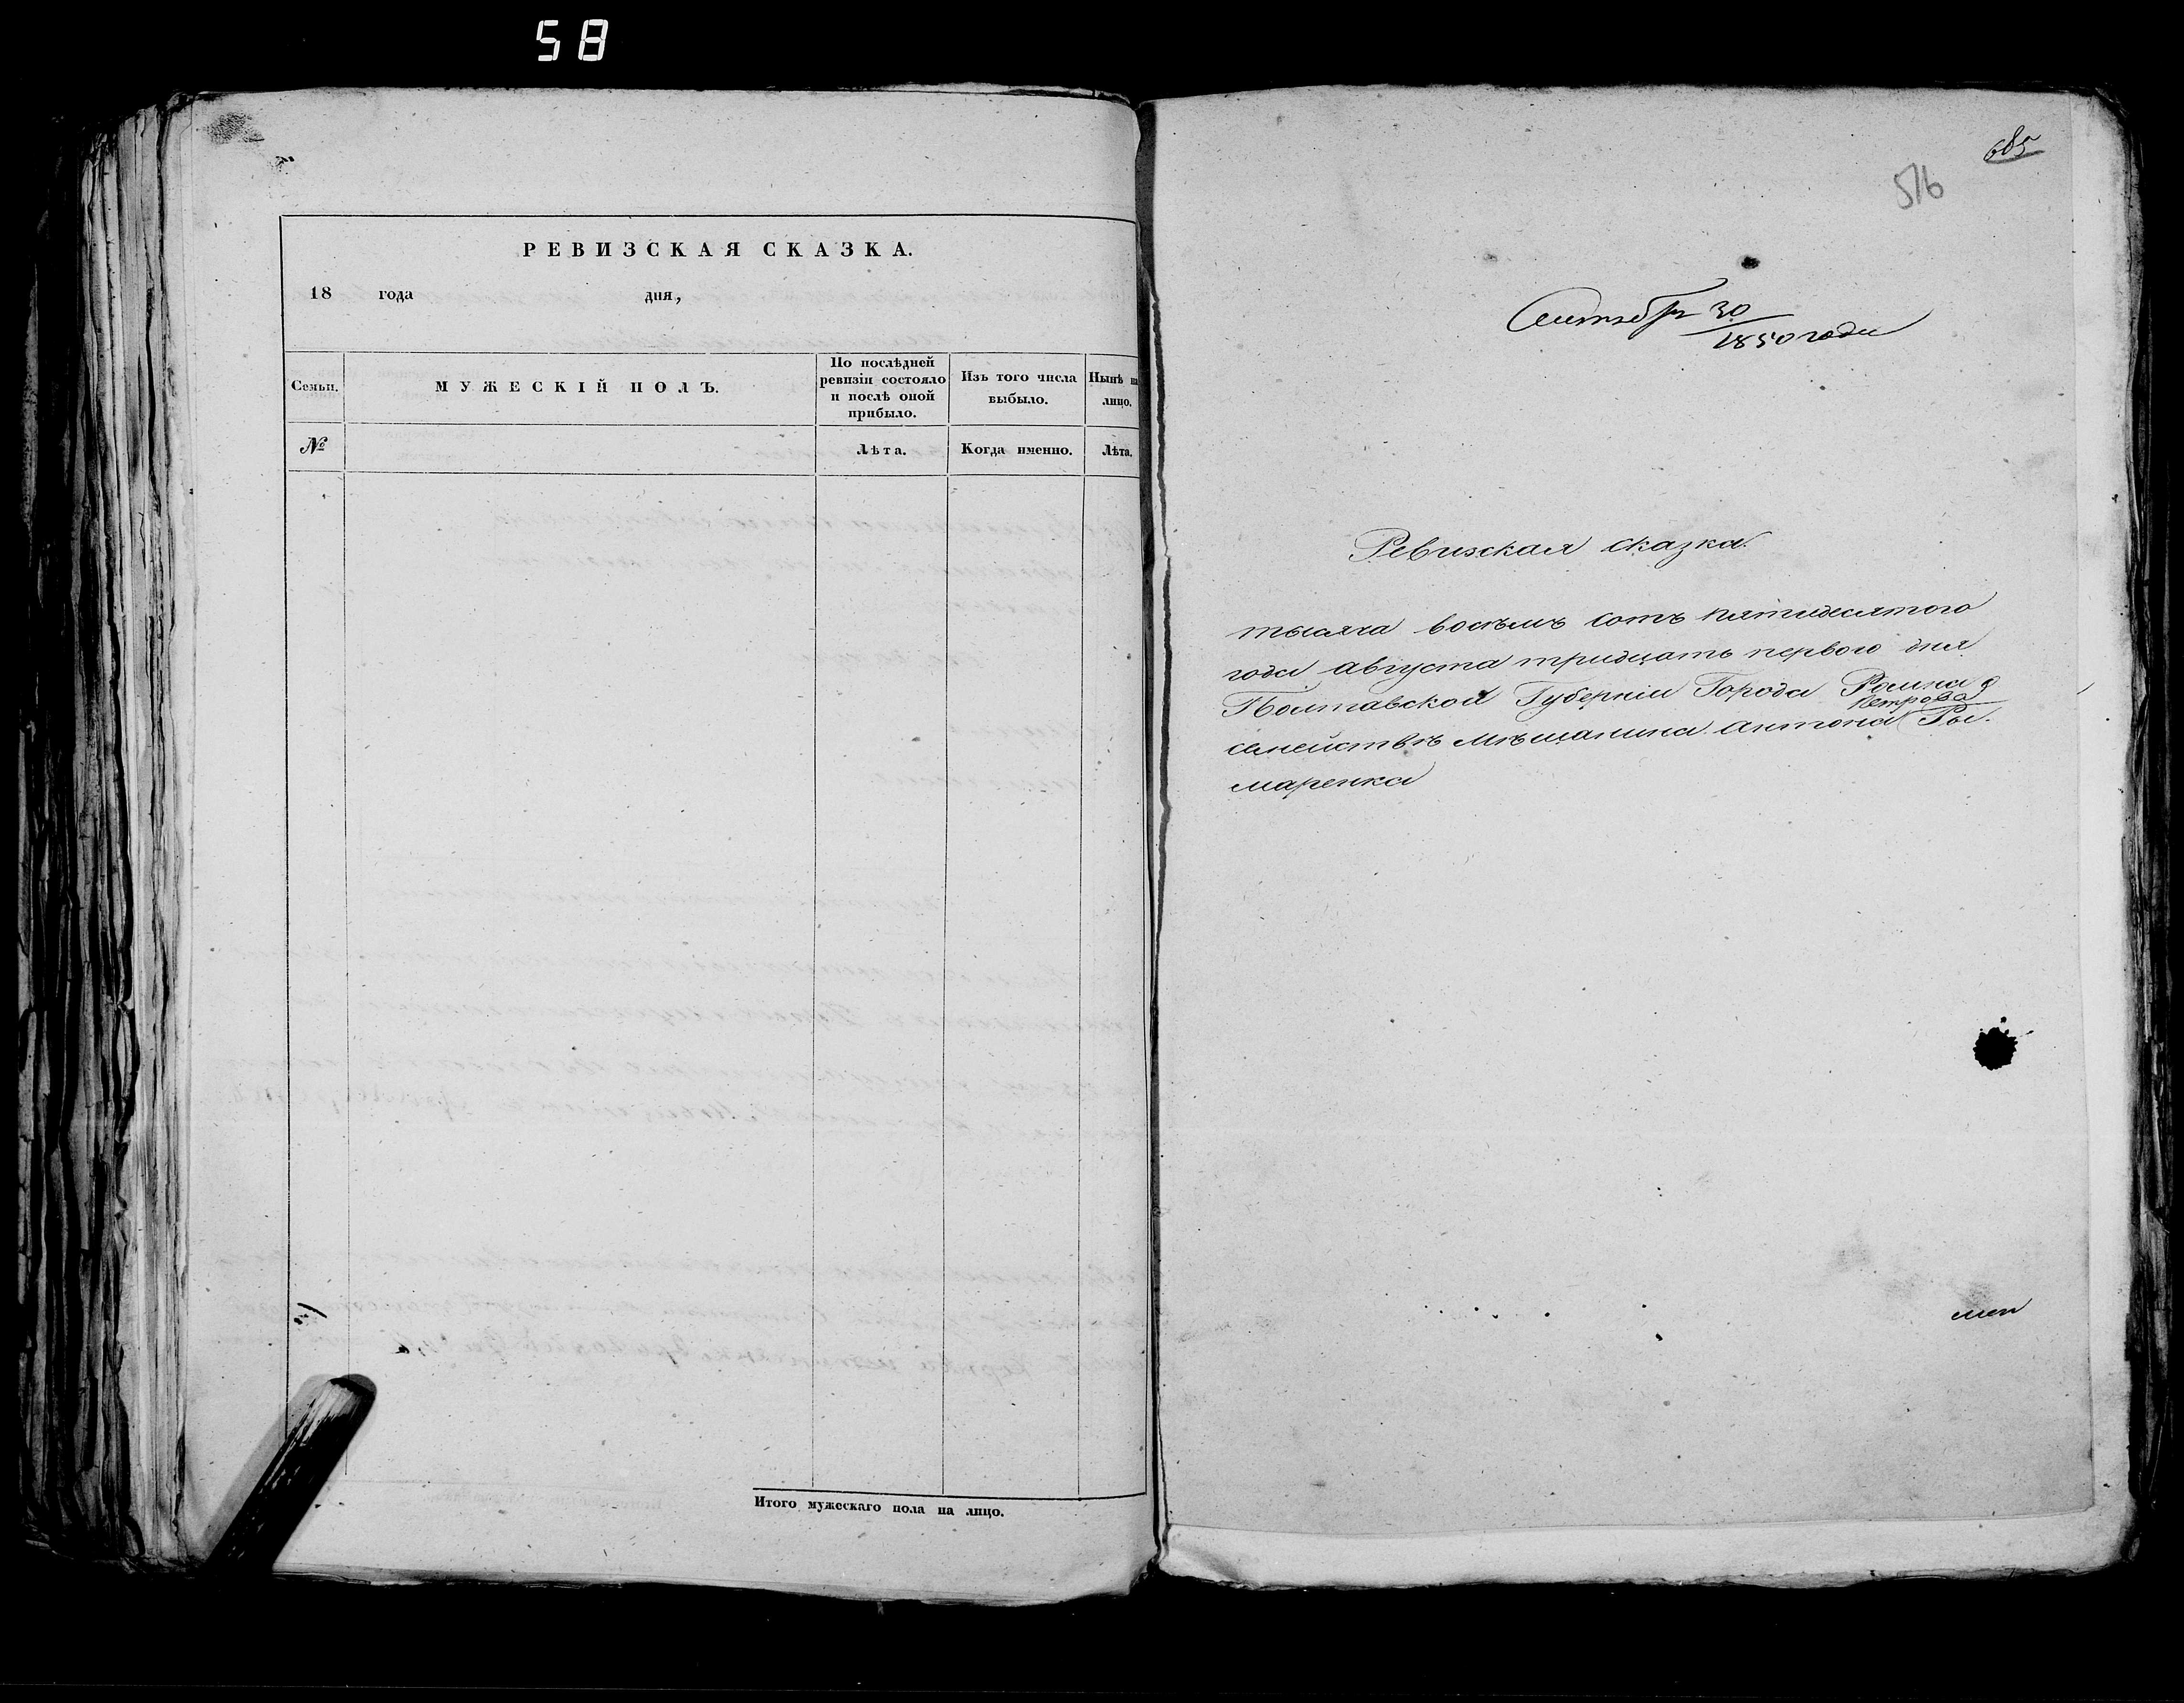 58
РЕВИЗСКАЯ СКАЗКА.
18 года дня,
Семьи.
МУЖЕСКІЙ ПОЛЪ.
По послѣдней
ревизіи состояло
и послѣ оной
прибыло.
Изъ того числа
выбыло.
Нынѣ на
лицо.
№
Лѣта.
Когда именно.
Лѣта.
Итого мужескаго пола на лицо.
685
516
30
1850 года
Ревизская сказка.
тысяча восѣмъ сотъ пятидесятого
года августа тридцать первого дня
Полтавской Губерніи Города Ромна о
Петрова
семействѣ мѣщанина Антона Ры.
маренка